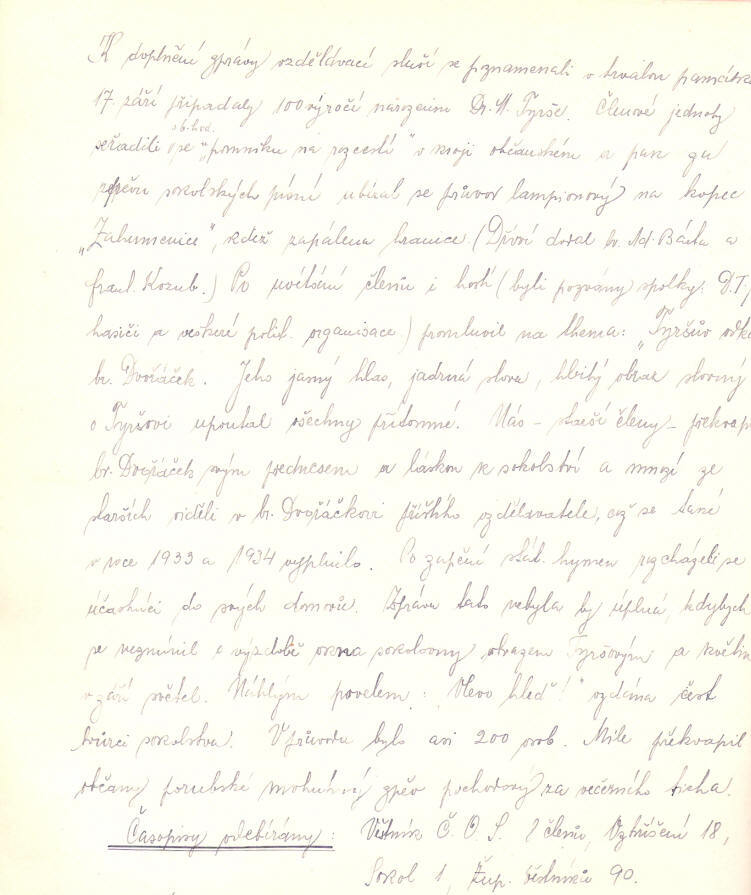 K doplnění zprávy vzdělávací sluší se poznamenati v trvalou památku
17. září připadalo 100 výročí narozenin Dr. M. Tyrše. Členové jednoty
seřadili se obchod. „pomníku na rozcestí" v kroji občanském a pak za
zpěvu sokolských písní ubíral se průvod lampionový na kopec
„Zahumenice", kdež zapálena hranice. (Dříví dodal br. Ad. Bárta a
frant. Kozub.) Po uvítání členů i hostí (byli pozvány spolky: D.T.J.
hasiči a veškeré polit. organisace.) promluvil na thema: „Tyršův odka
br. Dvořáček. Jeho jasný hlas, jadrná slova, hbitý obraz slovný
o Tyršovi upoutal všechny přítomné. Nás – starší členy – překvapi
br. Dvořáček svým přednesem a láskou k sokolství a mnozí ze
starších viděli v br. Dvořáčkovi příštího vzdělavatele, což se také
v roce 1933 a 1934 vyplnilo. Po zapění stát. hymen rozcházeli se
účastníci do svých domovů. Zpráva tato nebyla by úplná, kdybych
se nezmínil o výzdobě okna sokolovny obrazem Tyršovým a květin
v září světel. Náhlým povelem: „Vlevo hleď!" vzdána čest
tvůrci sokolstva. V průvodu bylo asi 200 osob. Mile překvapil
občany porubské mohutný zpěv pochodový za večerního ticha.
Časopisy odebírány: Věstník Č. O. S. 8 členů, Vzkříšení 18,
Sokol 1, Žup. věstníků 90.